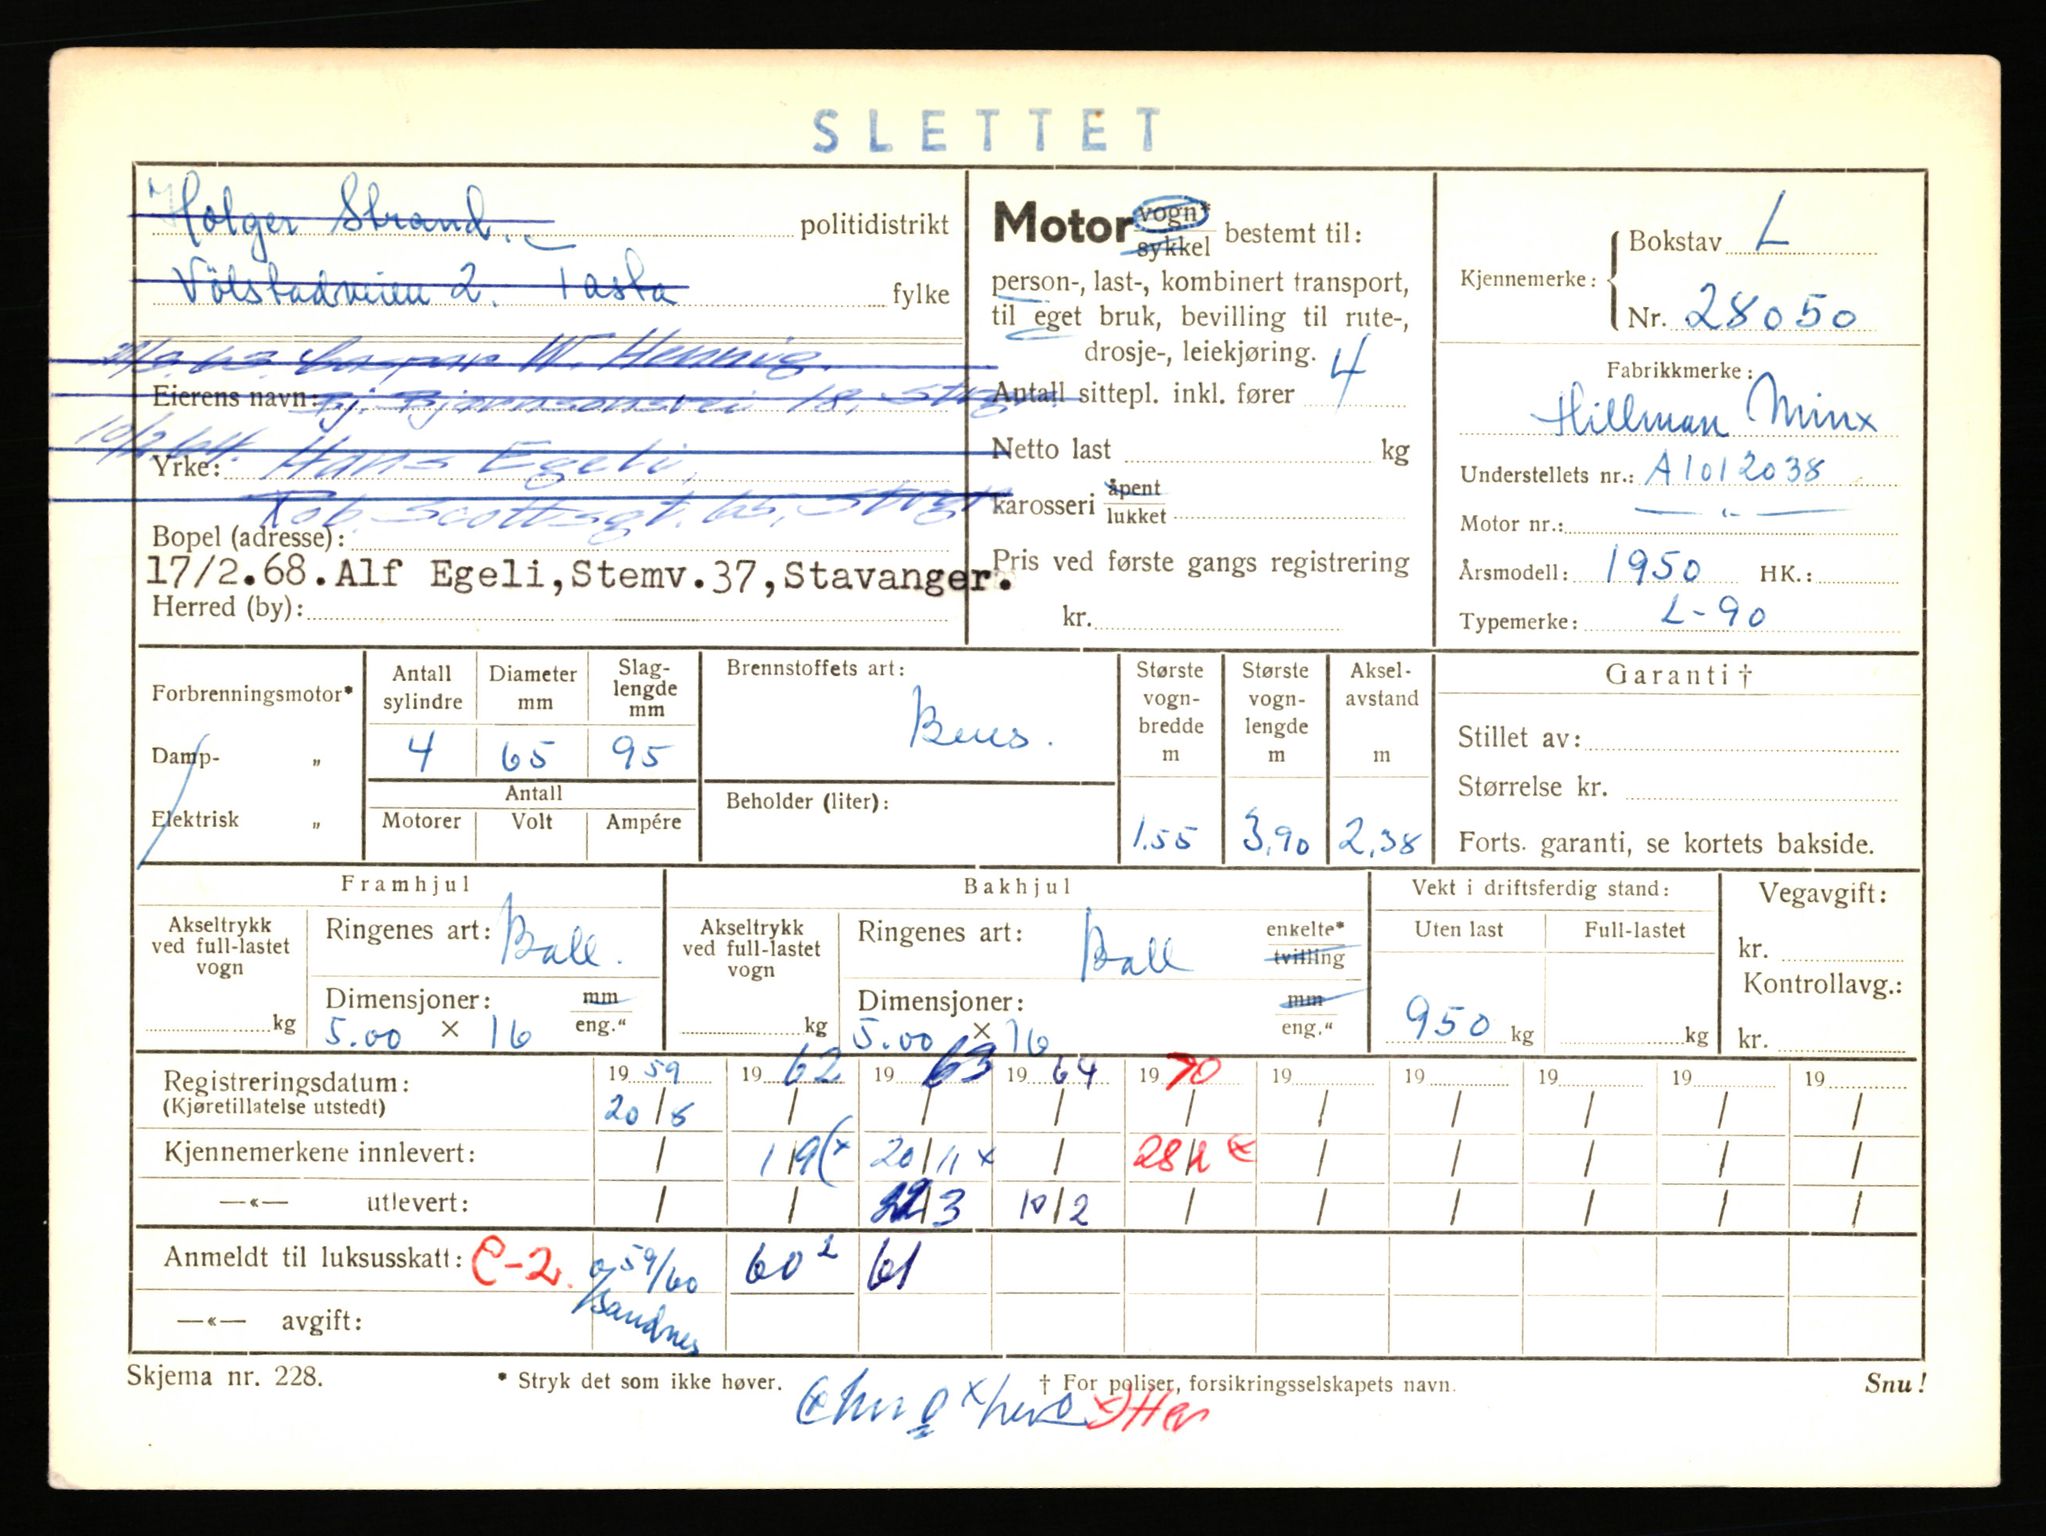 SLETTET
Holger Strand. politidistrikt
Völstadveien 2. Tasta fylke
W. Hennig.
Eierens navn: Bj. Bjørnsonsvei 18, Stvgr.
10/2 64. Yrke: Hans Egeli,
Rob. Scottsgt. 65, Stvgr
Bopel (adresse):
17/2.68.Alf Egeli,Stemv.37,Stavanger.
Herred (by):
Motor vogn* sykkel bestemt til:
person-, last-, kombinert transport,
til eget bruk, bevilling til rute-,
drosje-, leiekjøring.
Antall sittepl. inkl. fører 4
Netto last kg
karosseri åpent lukket
Pris ved første gangs registrering
kr.
Kjennemerke: Bokstav L
Nr. 28050
Fabrikkmerke:
Hillman Minx
Understellets nr.: A1012038
Motor nr.: — " —
Årsmodell: 1950 HK.:
Typemerke: L-90
Forbrenningsmotor*
Damp- „
Elektrisk „
Antall sylindre
Diameter mm
Slag-lengde mm
4 65 95
Antall
Motorer Volt Ampére
Brennstoffets art:
Bens.
Beholder (liter):
Største vogn-bredde m
Største vogn-lengde m
Aksel-avstand m
1.55 3,90 2,38
Garanti †
Stillet av:
Størrelse kr.
Forts. garanti, se kortets bakside.
Framhjul
Akseltrykk ved full-lastet vogn
kg
Ringenes art: Ball.
Dimensjoner: mm eng."
5.00 × 16
Bakhjul
Akseltrykk ved full-lastet vogn
kg
Ringenes art: Ball enkelte* tvilling
Dimensjoner: mm eng."
5.00 × 16
Vekt i driftsferdig stand:
Uten last Full-lastet
950 kg kg
Vegavgift:
kr.
Kontrollavg.:
kr.
Registreringsdatum: 19 59 19 62 19 63 19 64 19 70 19 19 19 19 19
(Kjøretillatelse utstedt) 20/8 / / / / / / / / /
Kjennemerkene innlevert: / 1/9 (x 20/11 x / 28/2 x / / / / /
—«— utlevert: / / 22/3 10/2 / / / / / /
Anmeldt til luksusskatt: C-2. 59/60 60² 61
Sandnes
—«— avgift:
Skjema nr. 228.
* Stryk det som ikke høver.
† For poliser, forsikringsselskapets navn.
Snu!